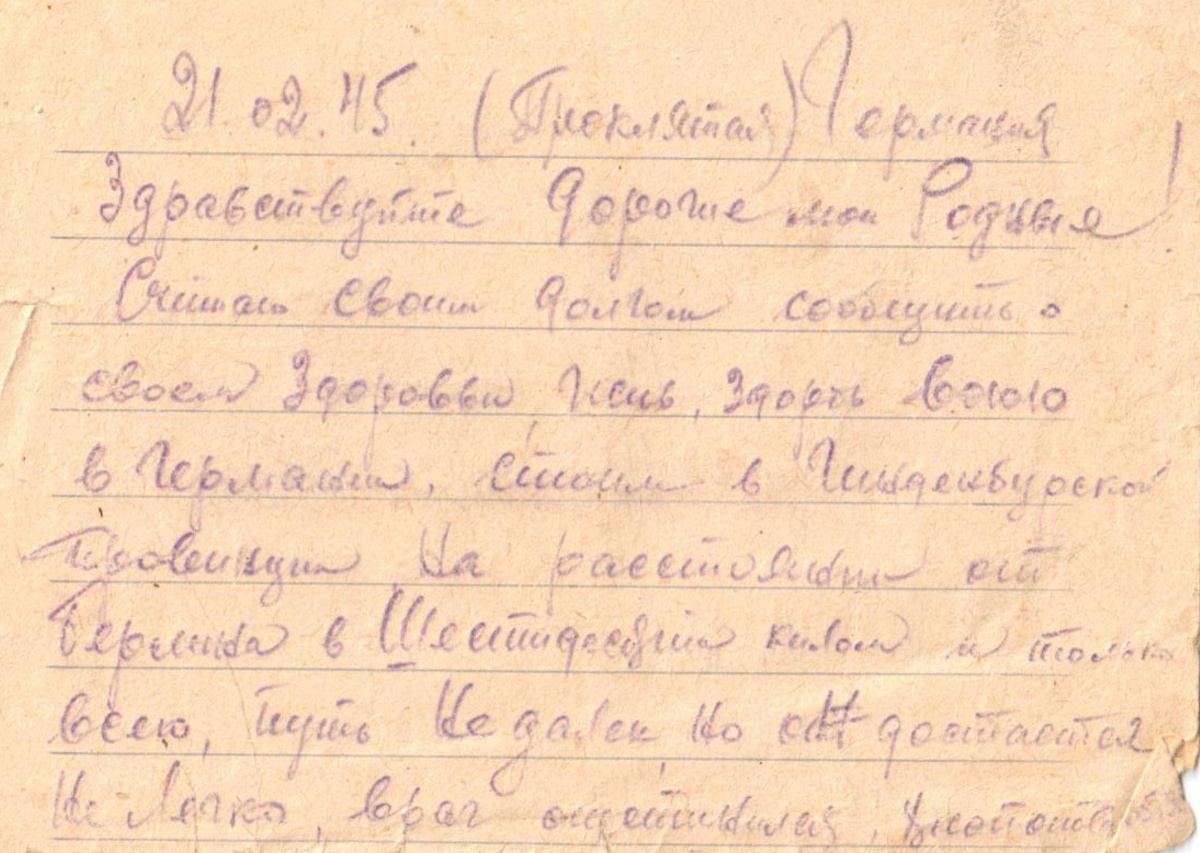 21.02.45. (Проклятая) Германия
Здравствуйте Дорогие мои Родные!
Считаю своим долгом сообщить о
своем Здоровьи, Жив, Здоров Воюю
в Германии, стоим в Гинденбурской
провинции На расстоянии от
Берлина в Шестидесяти килом и только
всего, путь Не далек, Но он достается
Не Легко, враг ощетинился,